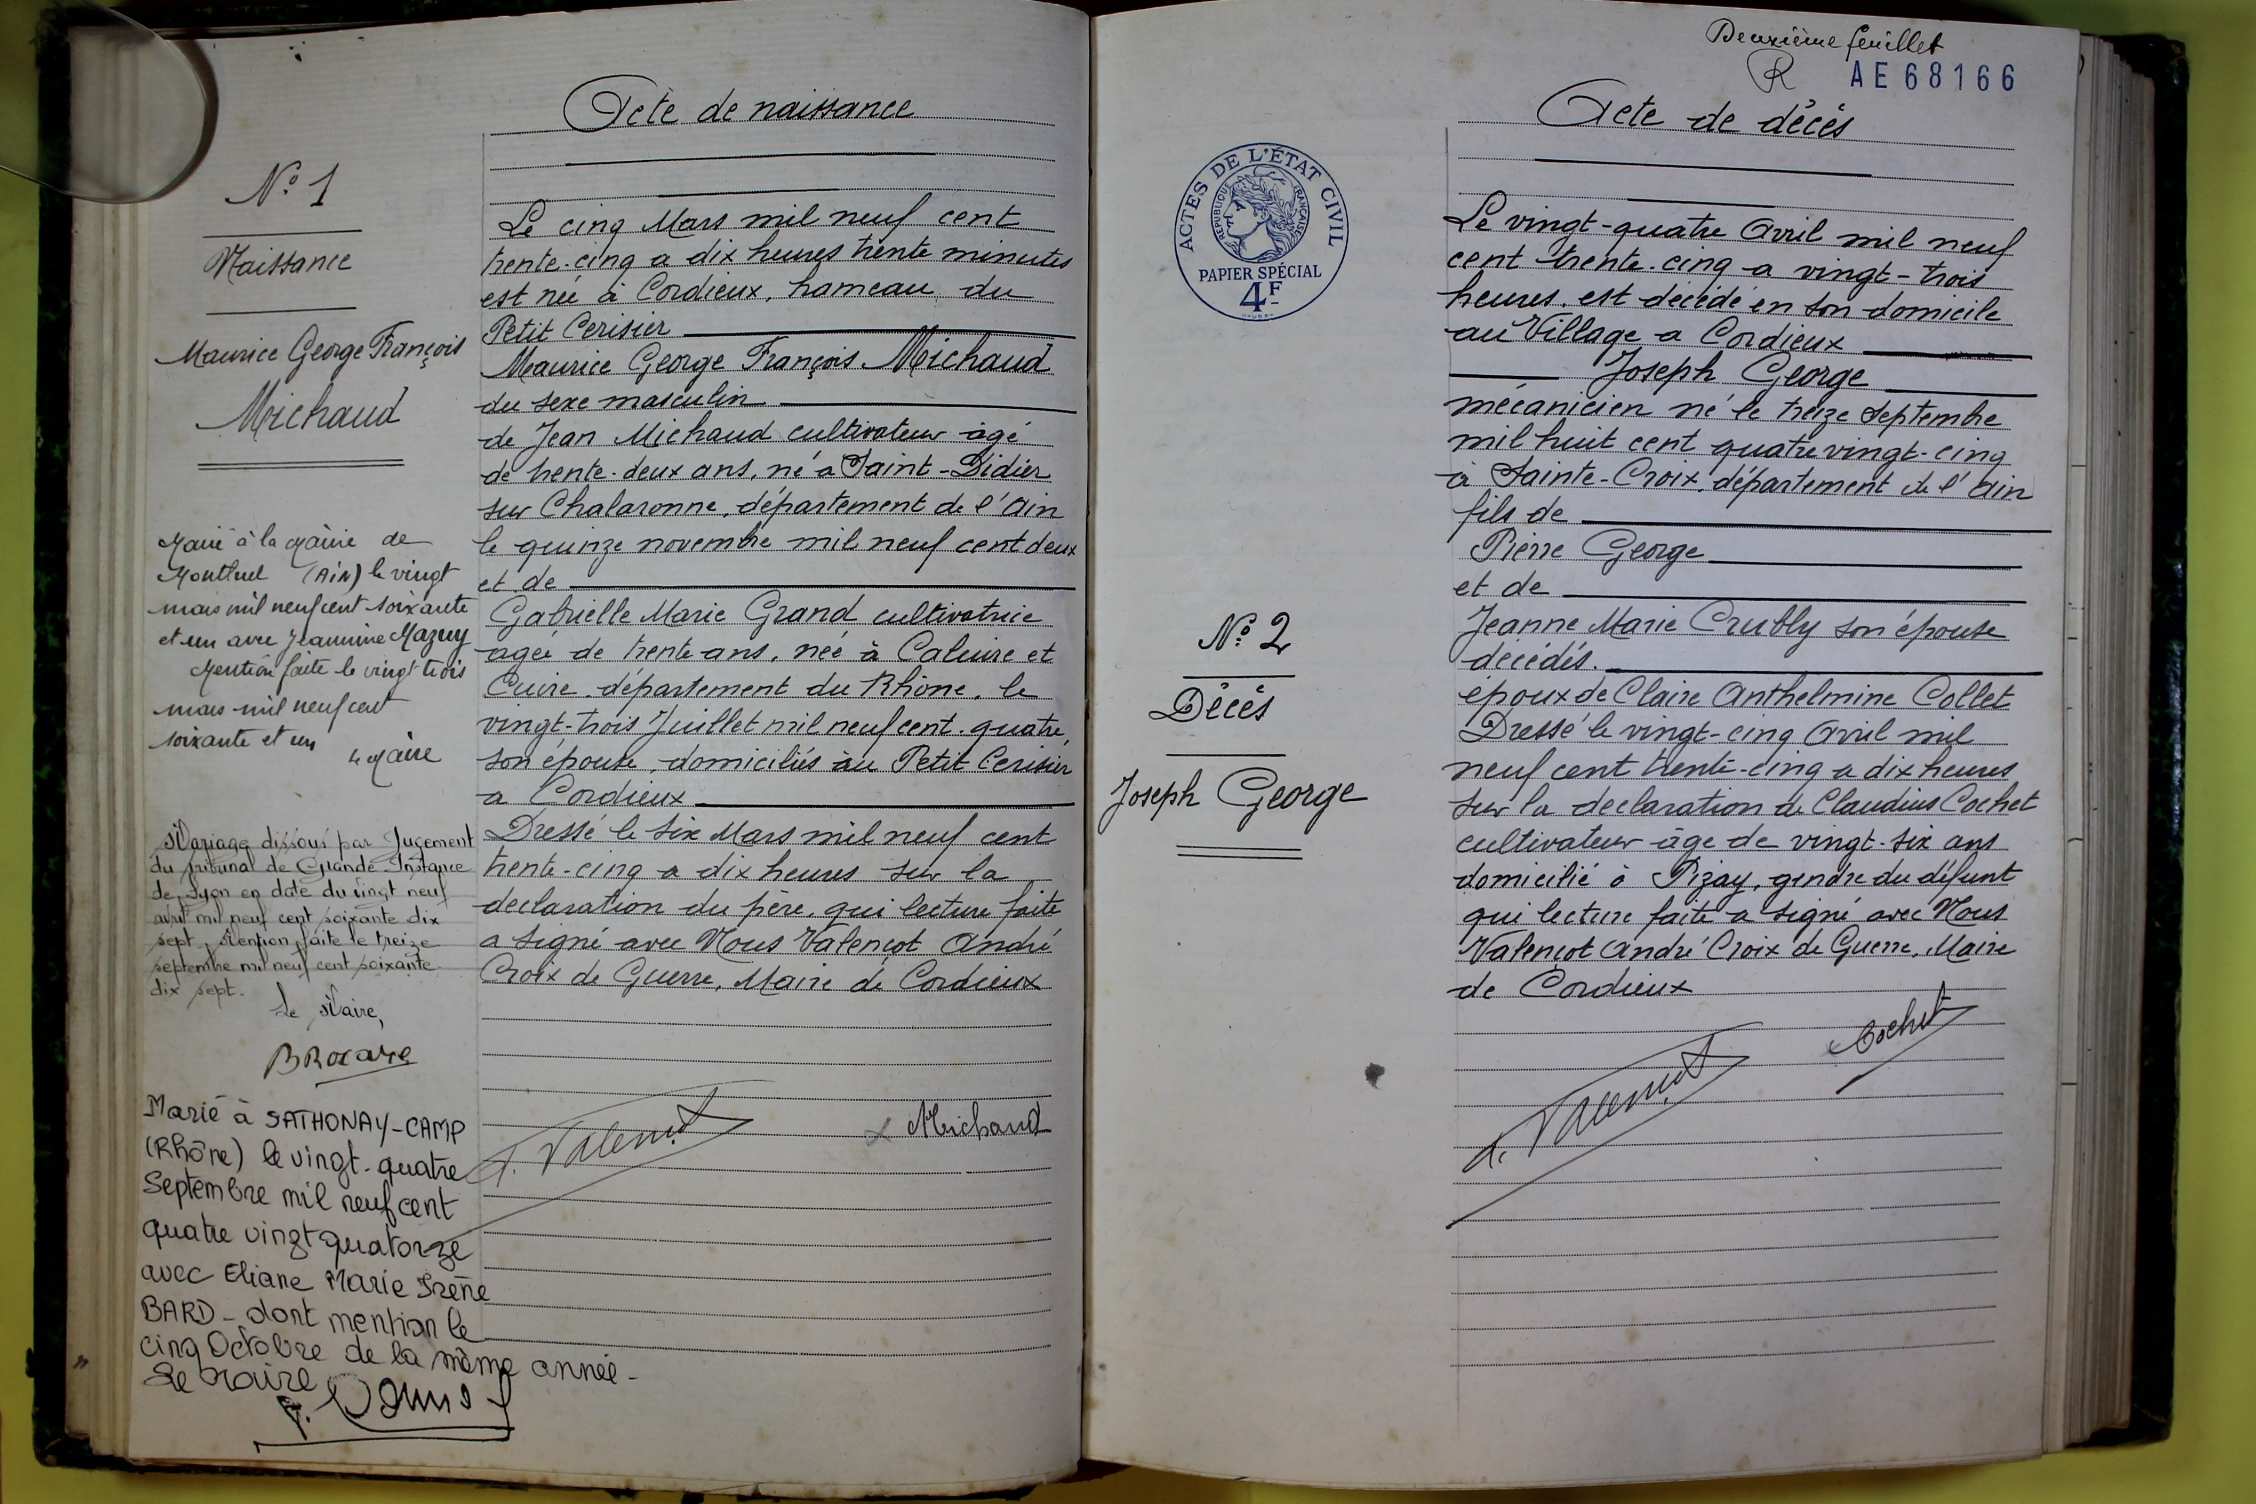 Acte de naissance
N° 1
Naissance
Maurice George François
Michaud
Le cinq Mars mil neuf cent
trente-cinq a dix heures trente minutes
est né à Cordieux, hameau du
Petit Cerisier
Maurice George François Michaud
du sexe masculin
de Jean Michaud cultivateur âgé
de trente-deux ans, né a Saint-Didier
sur Chalaronne, département de l'Ain
le quinze novembre mil neuf cent deux
et de
Gabrielle Marie Grand cultivatrice
agée de trente ans, née à Caluire et
Cuire département du Rhône, le
vingt-trois Juillet mil neuf cent-quatre,
son épouse, domiciliés au Petit Cerisier
a Cordieux
Dressé le six Mars mil neuf cent
trente-cinq a dix heures sur la
declaration du père, qui lecture faite
a signé avec Nous Valençot André
Croix de Guerre, Maire de Cordieux
A. Valençot
x Michaud
Marié à la Mairie de
Montluel (Ain) le vingt
mars mil neuf cent soixante
et un avec Jeannine Mazuy
Mention faite le vingt trois
mars mil neuf cent
soixante et un
Le Maire
Mariage dissous par Jugement
du tribunal de Grande Instance
de Lyon en date du vingt neuf
avril mil neuf cent soixante dix
sept. Mention faite le treize
septembre mil neuf cent soixante
dix sept.
Le Maire,
Marié à SATHONAY-CAMP
(Rhône) le vingt-quatre
Septembre mil neuf cent
quatre vingt quatorze
avec Eliane Marie Irène
BARD - dont mention le
cinq Octobre de la même année -
Le Maire
Deuxième feuillet
AE 68166
Acte de décés
ACTES DE L'ÉTAT CIVIL
RÉPUBLIQUE FRANÇAISE
PAPIER SPÉCIAL
4F
N° 2
Décés
Joseph George
Le vingt-quatre Avril mil neuf
cent trente-cinq a vingt-trois
heures, est décédé en son domicile
au Village a Cordieux
Joseph George
mécanicien né le treize Septembre
mil huit cent quatre vingt-cinq
à Sainte-Croix, département de l'Ain
fils de
Pierre George
et de
Jeanne Marie Crubly son épouse
décédés.
époux de Claire Anthelmine Collet
Dressé le vingt-cinq Avril mil
neuf cent trente-cinq a dix heures
sur la declaration de Claudius Cochet
cultivateur âge de vingt-six ans
domicilié à Pizay, gendre du défunt
qui lecture faite a signé avec Nous
Valençot André Croix de Guerre, Maire
de Cordieux
A. Valençot
Cochet